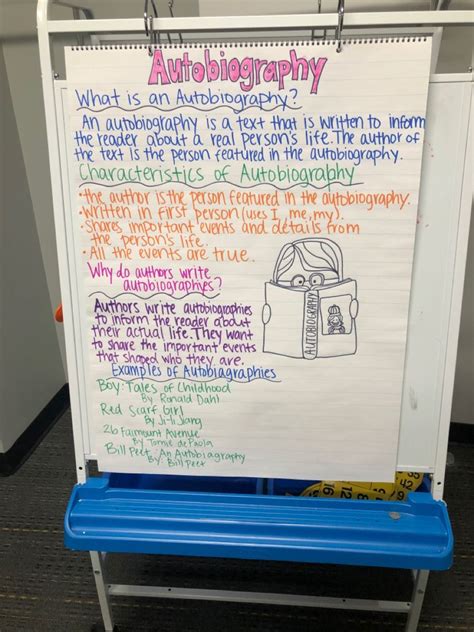 Autobiography
What is an Autobiography?
An autobiography is a text that is written to inform
the reader about a real person's life. The author of
the text is the person featured in the autobiography.
Characteristics of Autobiography
• the author is the person featured in the autobiography.
• Written in first person (uses I, me, my).
• Shares important events and details from
the person's life.
• All the events are true.
Why do authors write
autobiographies?
Authors write autobiographies
to inform the reader about
their actual life. They want
to share the important events
that shaped who they are.
AUTOBIOGRAPHY
Examples of Autobiagraphies
Boy: Tales of Childhood
By Ronald Dahl
Red Scarf Girl
By Ji-li Jiang
26 Fairmount Avenue
By Tomie dePaola
Bill Peet: An Autobiagraphy
By: Bill Peet